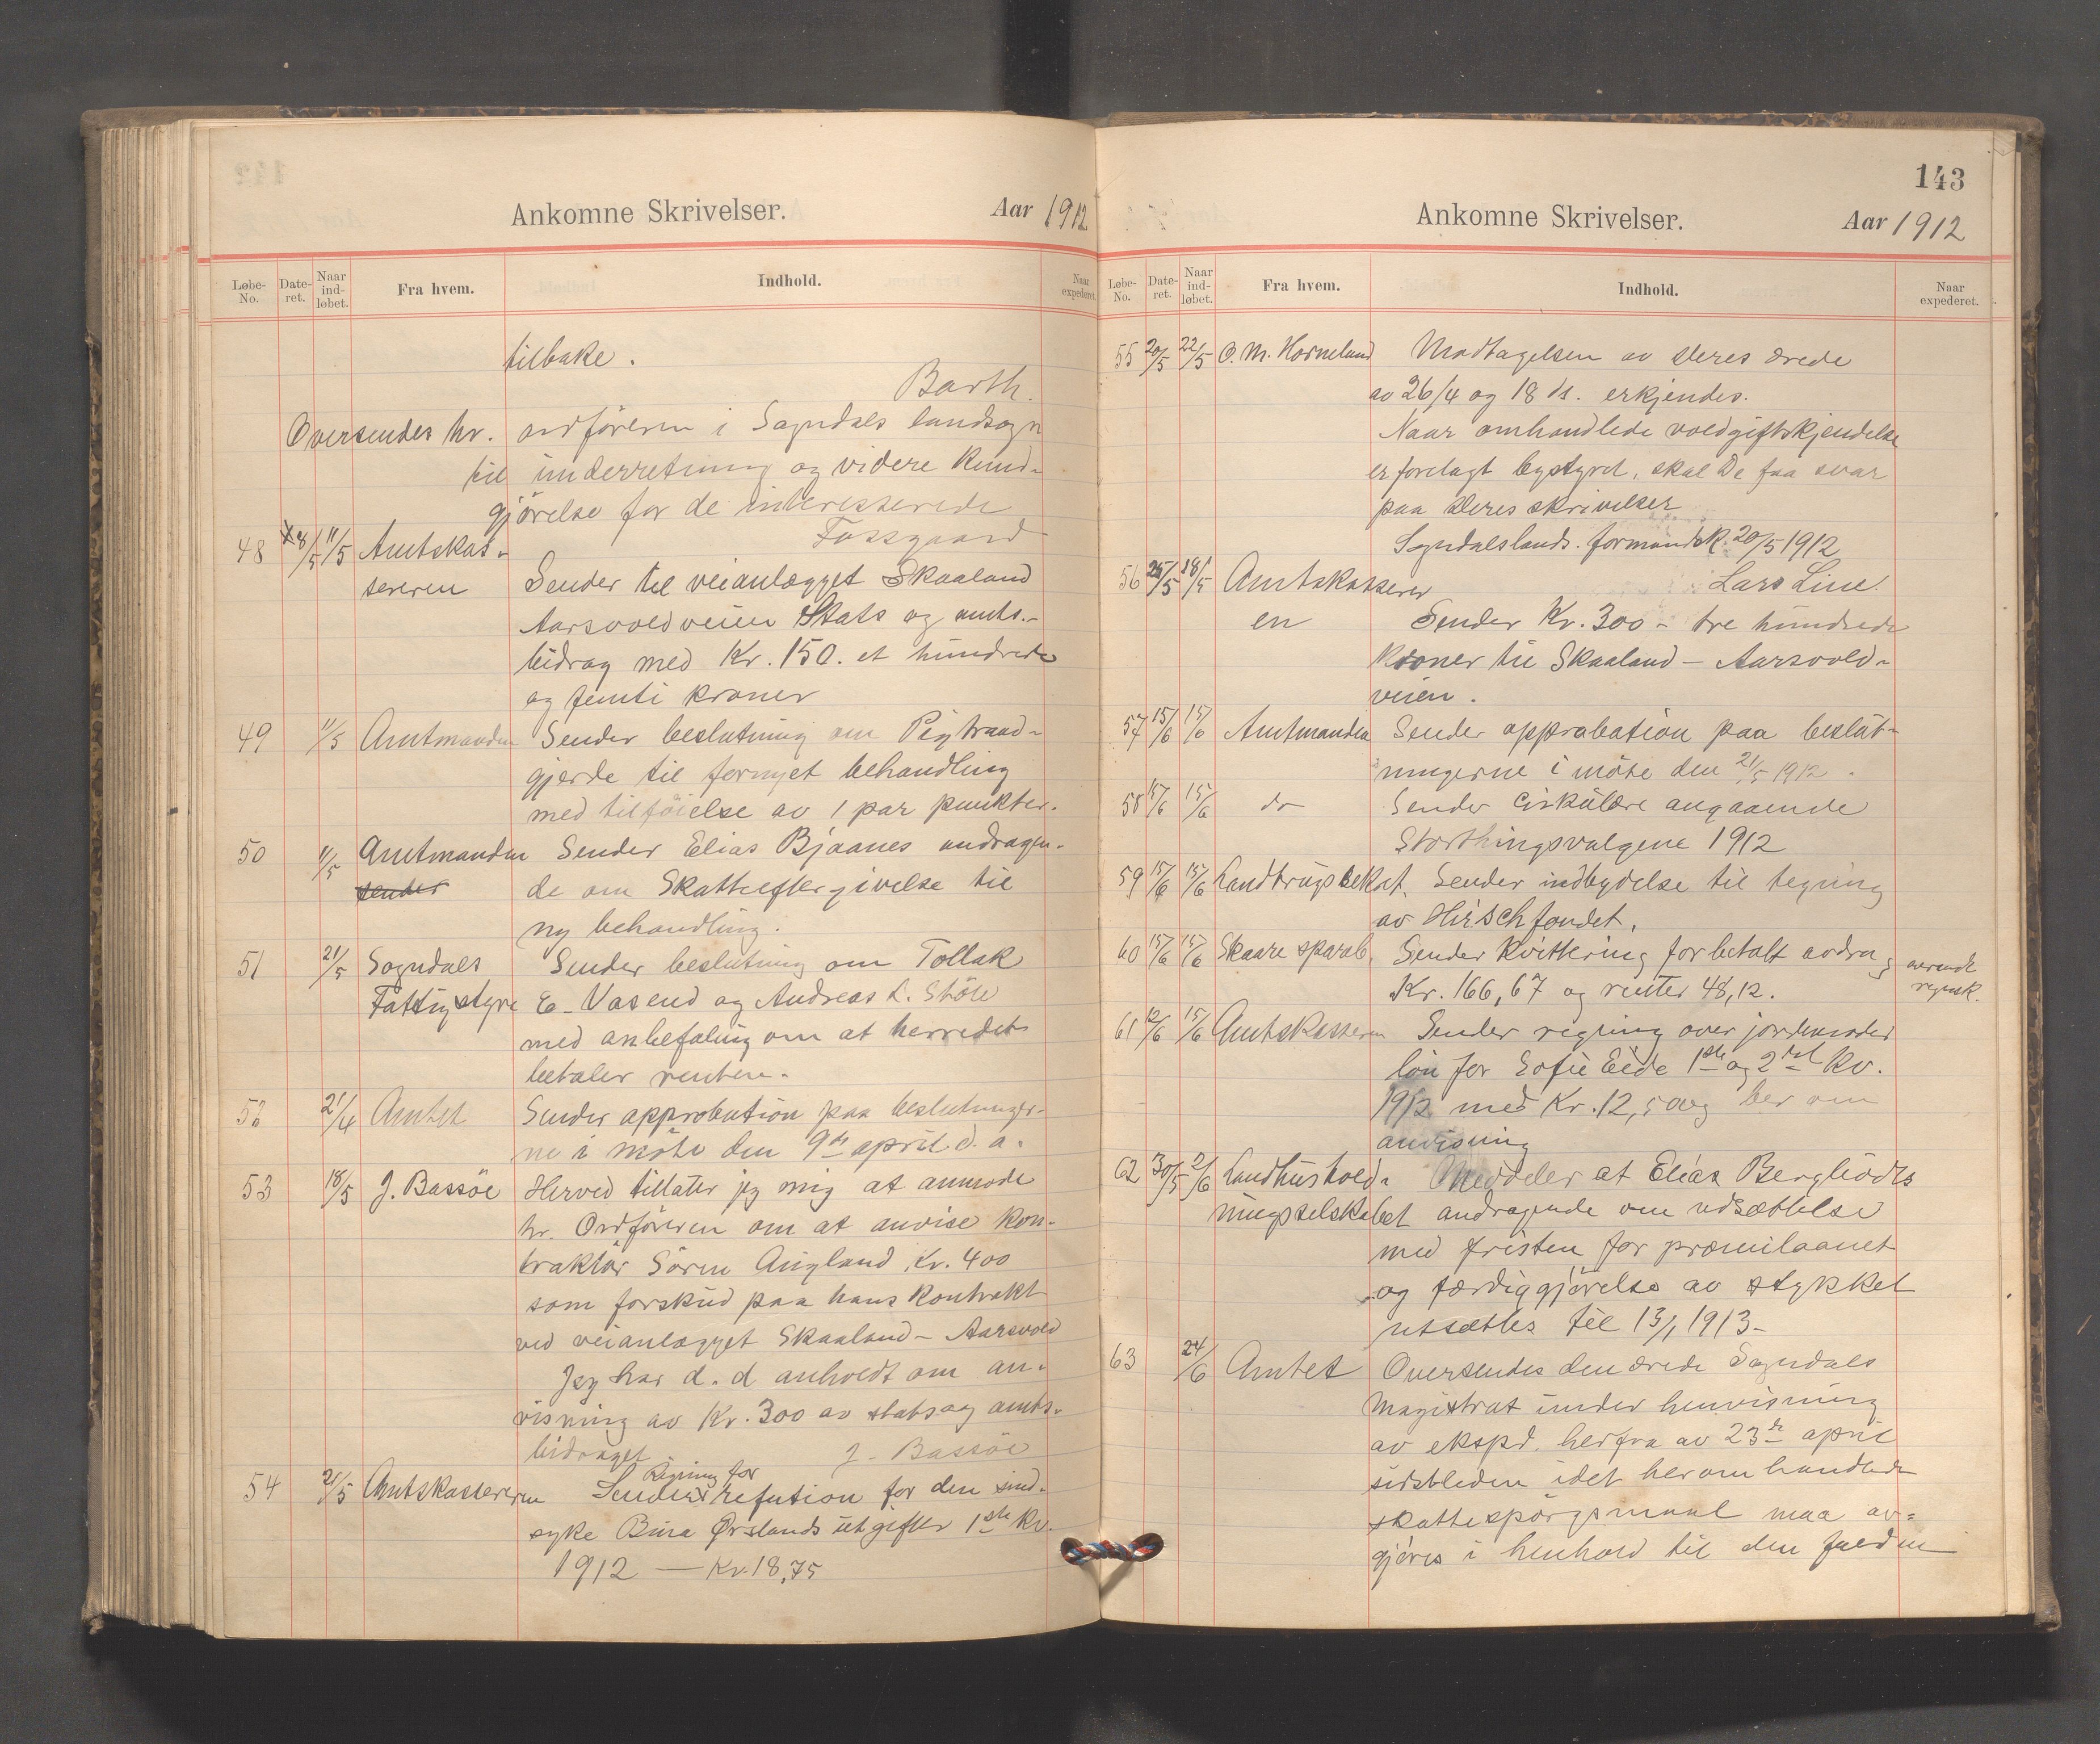 Ankomne Skrivelser. Aar 1912
Løbe-No. Date-ret. Naar ind-løbet. Fra hvem. Indhold. Naar expederet.
tilbake.
Barth.
Oversendes hr. ordföreren i Sogndals landsogn
til underretning og videre kund-
gjörelse for de interesserede
Fossgaard
48 8/5 11/5 Amtskas-
sereren Sender til veianlægget Skaaland
Aarsvoldveien Stats og amts-
bidrag med Kr. 150. et hundrede
og femti kroner
49 11/5 Amtmanden Sender beslutning om Pigtraad-
gjerde til fornyet behandling
med tilföielse av 1 par punkter.
50 11/5 Amtmanden Sender Elias Bjaanes andragen-
sender de om Skatteeftergivelse til
ny behandling.
51 21/5 Sogndals Sender beslutning om Tollak
Fattigstyre E. Vasend og Andreas L. Stöle
med anbefaling om at herredet
betaler renten.
52 21/4 Amtet Sender approbation paa beslutninger-
ne i möte den 9de april d. a.
53 18/5 J. Bassöe Herved tillater jeg mig at anmode
hr. Ordföreren om at anvise kon-
traktör Sören Augland Kr. 400
som forskud paa hans kontrakt
ved veianlægget Skaaland - Aarsvold
Jeg har d. d anholdt om an-
visning av Kr. 300 av stats og amts-
bidraget. J. Bassöe
Regning for
54 21/5 Amtskassereren Sender refution for den sind-
syke Bina Ørslands utgifter 1ste kv.
1912 — Kr. 18,75
143
Ankomne Skrivelser. Aar 1912
Løbe-No. Date-ret. Naar ind-løbet. Fra hvem. Indhold. Naar expederet.
55 20/5 22/5 O. M. Horneland Modtagelsen av Deres ærede
av 26/4 og 18 ds. erkjendes.
Naar omhandlede voldgiftskjendelse
er forelagt bystyret, skal De faa svar
paa Deres skrivelser
Sogndalslands. formandsk. 20/5 1912
Lars Line.
56 25/5 18/5 Amtskasserer
en Sender Kr. 300 - tre hundrede
Kroner til Skaaland - Aarsvold-
veien.
57 15/6 15/6 Amtmanden Sender approbation paa beslut-
ningerne i möte den 21/5 1912.
58 15/6 15/6 do Sender Cirkulære angaaende
Storthingsvalgene 1912
59 15/6 15/6 Landbrugsselskat. Sender indbydelse til tegning
av Hirschfondet.
60 15/6 15/6 Skaare spareb. Sender kvittering for betalt avdrag
Kr. 166,67 og renter 48,12.
61 12/6 15/6 Amtskasseren Sender regning over jordmoder
lön for Sofie Eide 1ste og 2det kv.
1912 med Kr. 12,50 og ber om
anvisning
62 30/5 2/6 Landhushold- Meddeler at Elias Bergliods
ningsselskabet andragende om udsættelse
med fristen for præmilaanet
og færdiggjörelse av stykket
utsættes til 13/1 1913-
63 24/6 Amtet Oversendes den ærede Sogndals
Magistrat under henvisning
av ekspd. herfra av 23de april
sidstleden idet heromhandlede
skattespörgsmaal maa av-
gjöres i henhold til den